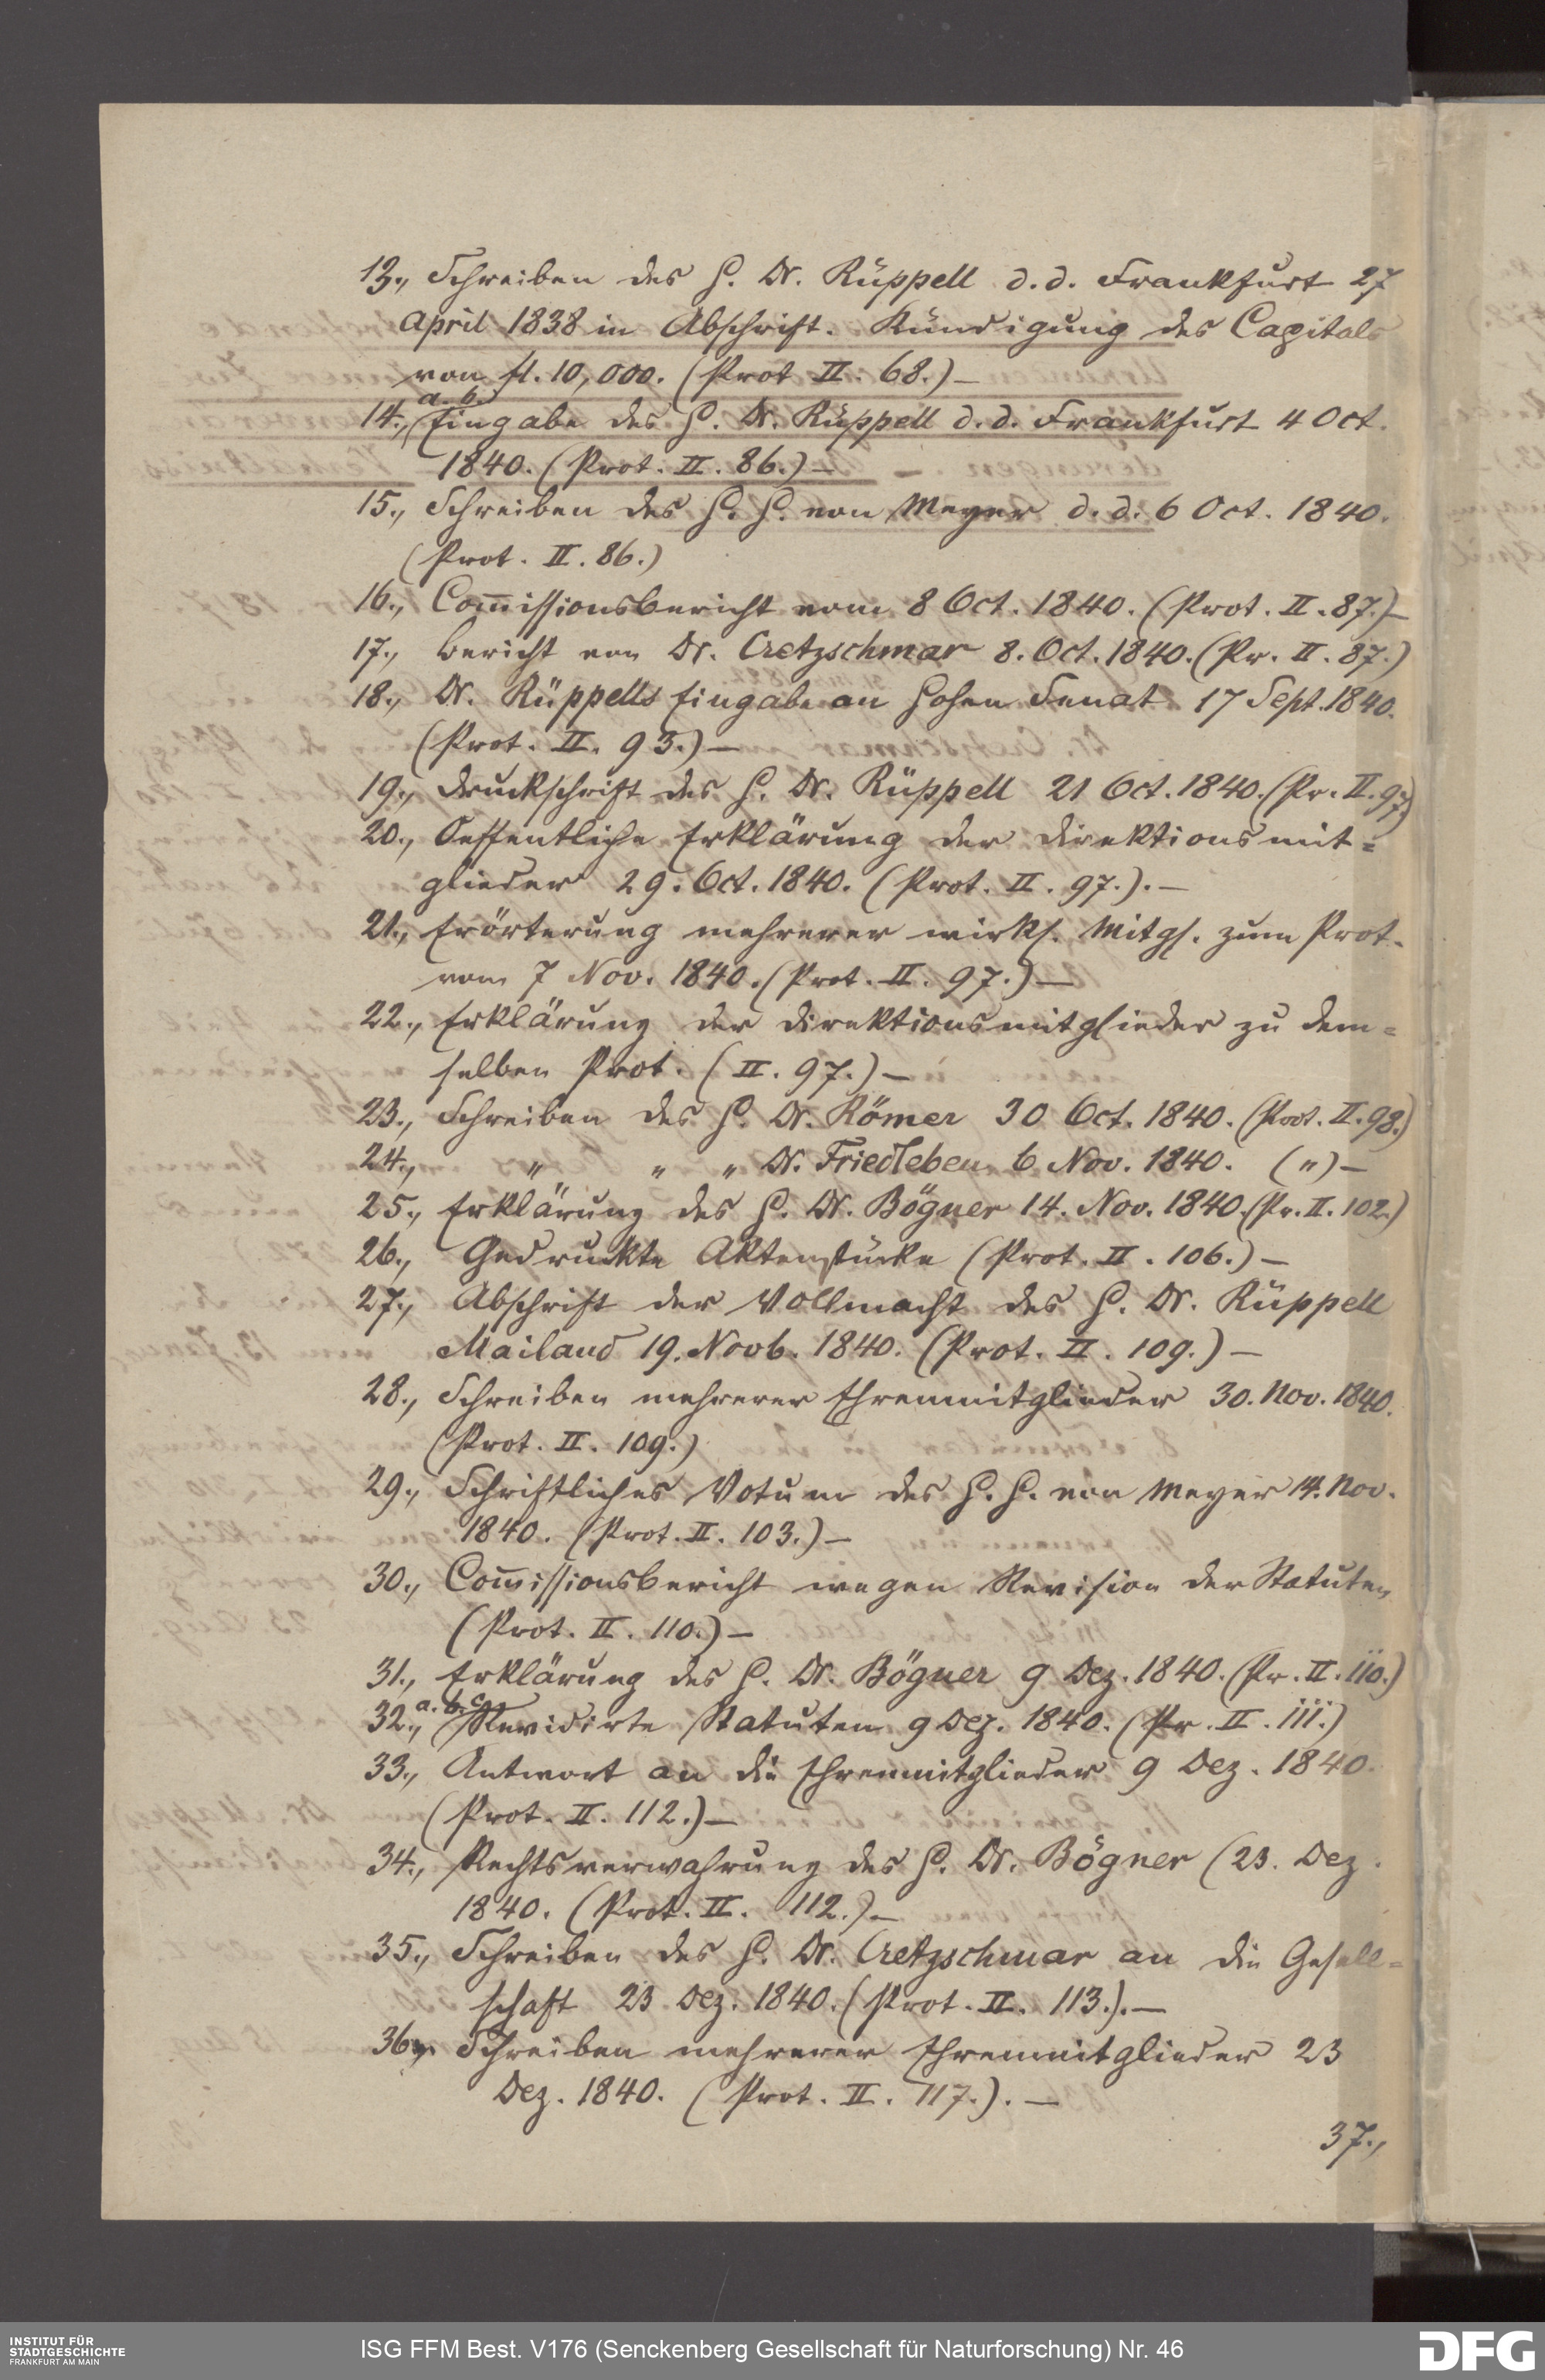 13., Schreiben des H. Dr. Rüppell d. d. Frankfurt 27
April 1838 in Abschrift. Kündigung des Capitals
von fl. 10,000. (Prot II. 68.) —
a. b.
14., Eingabe des H. Dr. Rüppell d. d. Frankfurt 4 Oct.
1840. (Prot. II. 86.) —
15., Schreiben des H. H. von Meyer d. d. 6 Oct. 1840.
(Prot. II. 86.)
16., Com̅issionsbericht vom 8 Oct. 1840. (Prot. II. 87.) —
17., Bericht von Dr. Cretzschmar 8. Oct. 1840. (Pr. II. 87.)
18., Dr. Rüppells Eingabe an Hohen Senat 17 Sept. 1840.
(Prot. II. 93.) —
19., Druckschrift des H. Dr. Rüppell 21 Oct. 1840. (Pr. II. 97.)
20., Oeffentliche Erklärung der Direktionsmit=
glieder 29. Oct. 1840. (Prot. II. 97.). —
21., Erörterung mehrerer wirkl. Mitgl. zum Prot.
vom 7 Nov. 1840. (Prot. II. 97.) —
22., Erklärung der Direktionsmitglieder zu dem=
selben Prot. (II. 97.) —
23., Schreiben des H. Dr. Römer 30 Oct. 1840. (Prot. II. 98.)
24., " " " Dr. Friedleben 6 Nov. 1840. (") —
25., Erklärung des H. Dr. Bögner 14. Nov. 1840. (Pr. II. 102.)
26., Gedruckte Aktenstücke (Prot. II. 106.) —
27., Abschrift der Vollmacht des H. Dr. Rüppell
Mailand 19. Novb. 1840. (Prot. II. 109.) —
28., Schreiben mehrerer Ehrenmitglieder 30. Nov. 1840.
(Prot. II. 109.)
29., Schriftliches Votum des H. H. von Meyer 14. Nov.
1840. (Prot. II. 103.) —
30., Com̅issionsbericht wegen Revision der Statuten
(Prot. II. 110.) —
31., Erklärung des H. Dr. Bögner 9 Dez. 1840. (Pr. II. 110.)
a. b. c.
32., Revidirte Statuten 9 Dez. 1840. (Pr. II. 111.)
33., Antwort an die Ehrenmitglieder 9 Dez. 1840.
(Prot. II. 112.) —
34., Rechtsverwahrung des H. Dr. Bögner (23. Dez.
1840. (Prot. II. 112.) —
35., Schreiben des H. Dr. Cretzschmar an die Gesell=
schaft 23 Dez. 1840. (Prot. II. 113.). —
36., Schreiben mehrerer Ehrenmitglieder 23
Dez. 1840. (Prot. II. 117.). —
37.,
INSTITUT FÜR
STADTGESCHICHTE
FRANKFURT AM MAIN
ISG FFM Best. V176 (Senckenberg Gesellschaft für Naturforschung) Nr. 46
DFG